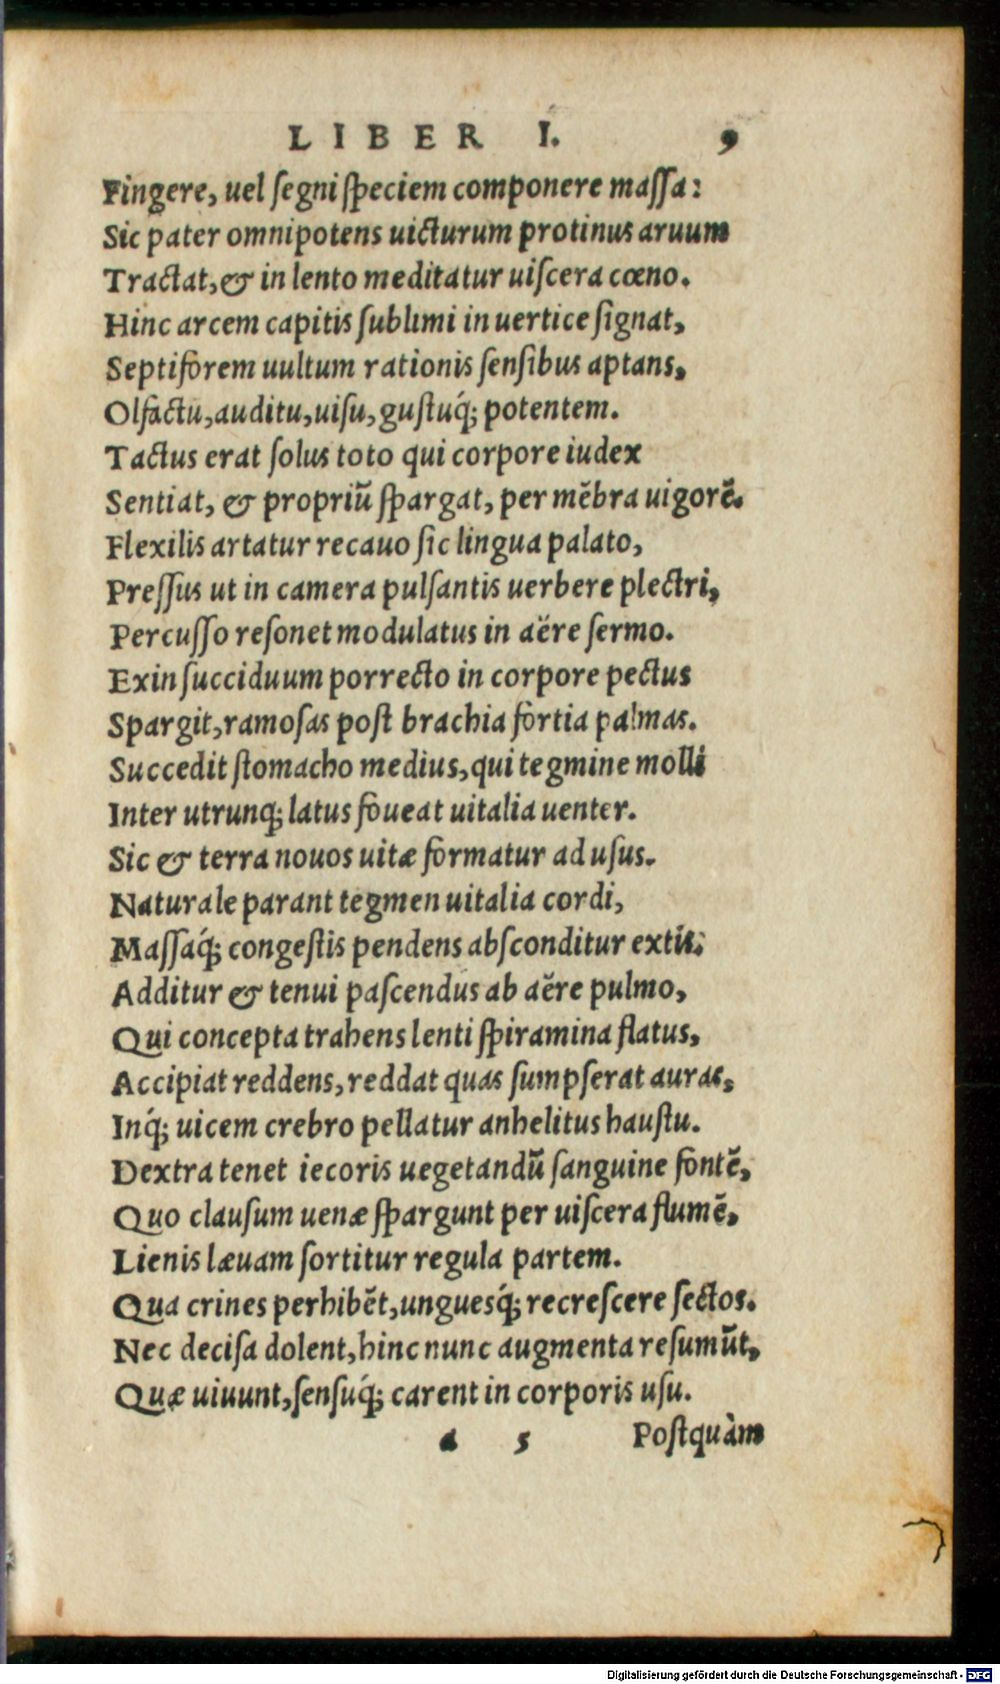 LIBER I. 9
Fingere, uel ſegni ſpeciem componere maſſa:
Sic pater omnipotens uicturum protinus aruum
Tractat, & in lento meditatur uiſcera cœno.
Hinc arcem capitis ſublimi in uertice ſignat,
Septiforem uultum rationis ſenſibus aptans,
Olfactu, auditu, uiſu, guſtuq́; potentem.
Tactus erat ſolus toto qui corpore iudex
Sentiat, & propriū ſpargat, per mēbra uigorē.
Flexilis artatur recauo ſic lingua palato,
Preſſus ut in camera pulſantis uerbere plectri,
Percuſſo reſonet modulatus in aëre ſermo.
Exin ſucciduum porrecto in corpore pectus
Spargit, ramoſas poſt brachia fortia palmas.
Succedit ſtomacho medius, qui tegmine molli
Inter utrunq; latus foueat uitalia uenter.
Sic & terra nouos uitæ formatur ad uſus.
Naturale parant tegmen uitalia cordi,
Maſſaq́; congeſtis pendens abſconditur extis:
Additur & tenui paſcendus ab aëre pulmo,
Qui concepta trahens lenti ſpiramina flatus,
Accipiat reddens, reddat quas ſumpſerat auras,
Inq́; uicem crebro pellatur anhelitus hauſtu.
Dextra tenet iecoris uegetandū ſanguine fontē,
Quo clauſum uenæ ſpargunt per uiſcera flumē,
Lienis læuam ſortitur regula partem.
Qua crines perhibēt, unguesq́; recreſcere ſectos.
Nec deciſa dolent, hinc nunc augmenta reſumūt,
Quæ uiuunt, ſenſuq́; carent in corporis uſu.
a 5 Poſtquàm
Digitalisierung gefördert durch die Deutsche Forschungsgemeinschaft - DFG